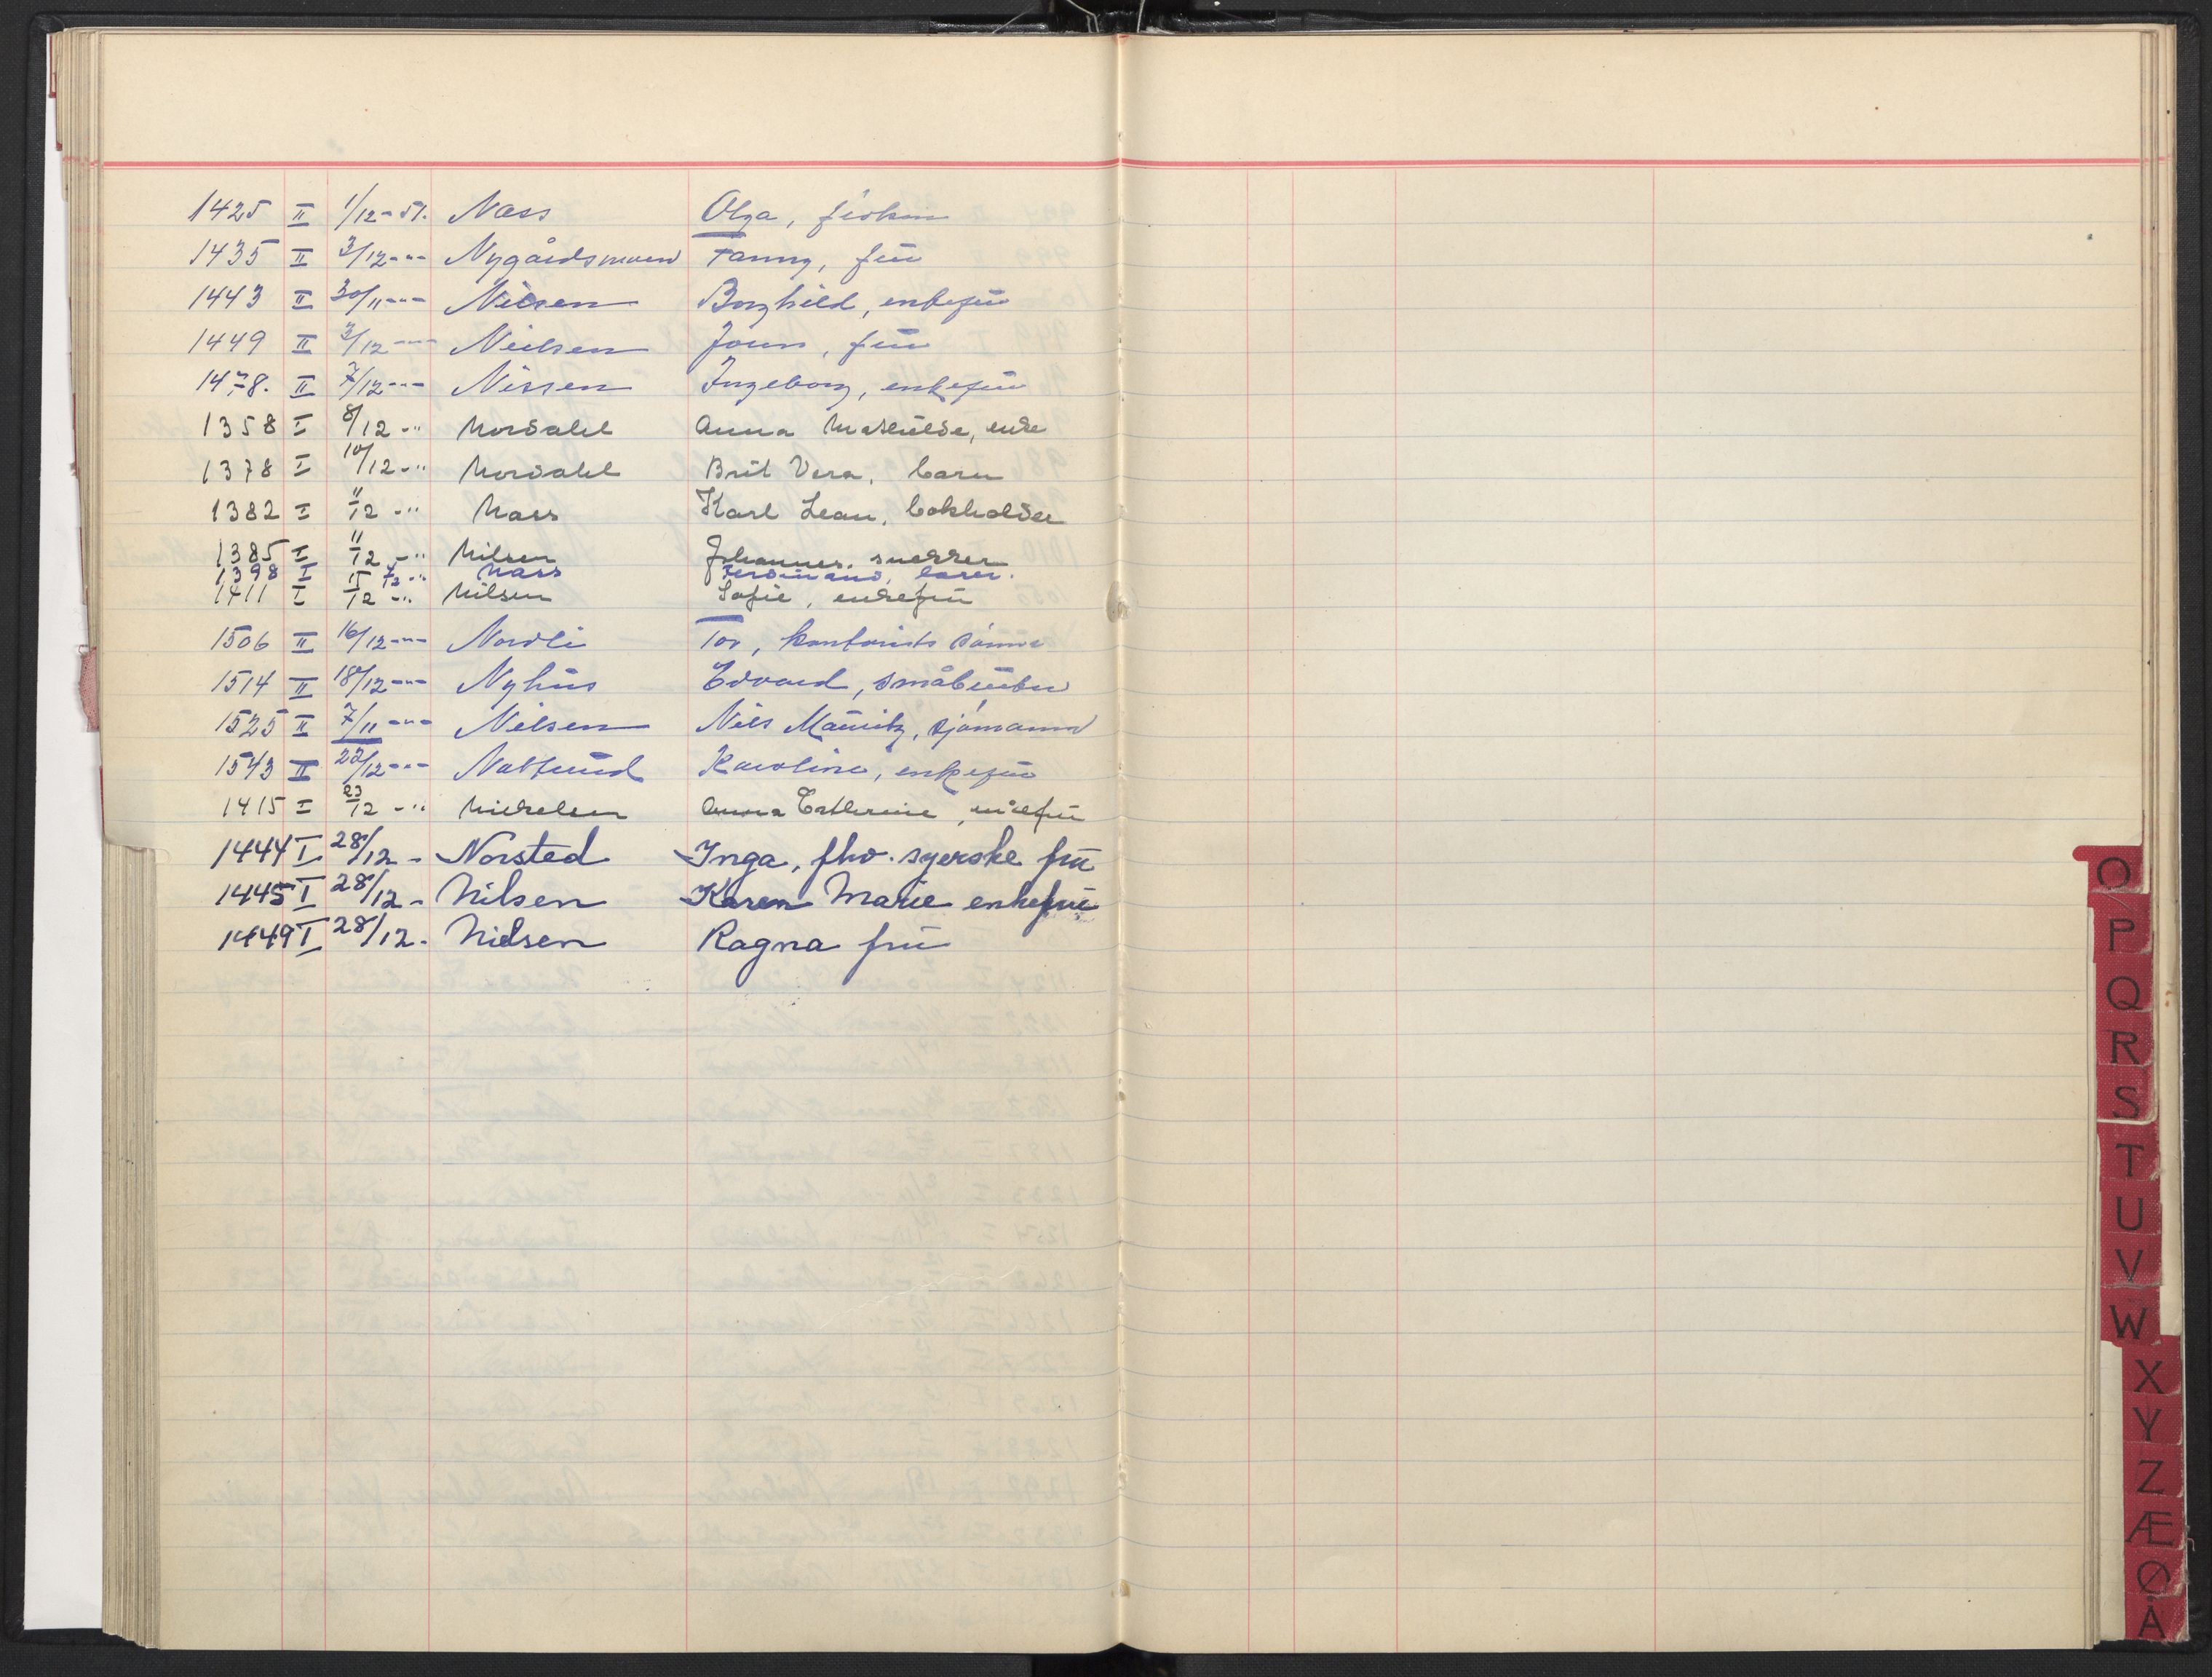 1425 II 1/12-51. Næss Olga, frøken
1435 II 3/12-"- Nygårdsmoen Fanny, frü
1443 II 30/11-"- Nilsen Borghild, enkefrü
1449 II 3/12-"- Neilsen frü
1478. II 7/12-"- Nissen Ingeborg, enkefrü
1358 I 8/12-" Nordahl Anna Mathilde, enke
1378 I 10/12-" Nordahl Brit Vera, barn
1382 I 11/12-" Næss Karl Leau, bokholder
1385 I 11/12-" Nilsen Johannes, snekker
1398 I 7/12-" Næss Ferdinand,
1411 I 15/12-" Nilsen Sofie, enkefrü
1506 II 16/12-"- Nordli Tor, kontorists sønn
1514 II 18/12-"- Nyhüs Edvard, småbrüker
1525 II 7/11-"- Nilsen Nils Mauritz, sjømann
1543 II 22/12-"- Karoline, enkefrü
1415 I 23/12-" Mikkelsen Anna Cathrine, enkefrü
1444 I 28/12- Norsted Inga, fhv. syerske frü
1445 I 28/12- Nilsen Karen Marie enkefrü
1449 I 28/12- Nielsen Ragna frü
O
P
Q
R
S
T
U
V
W
X
Y
Z
Æ
Ø
Å